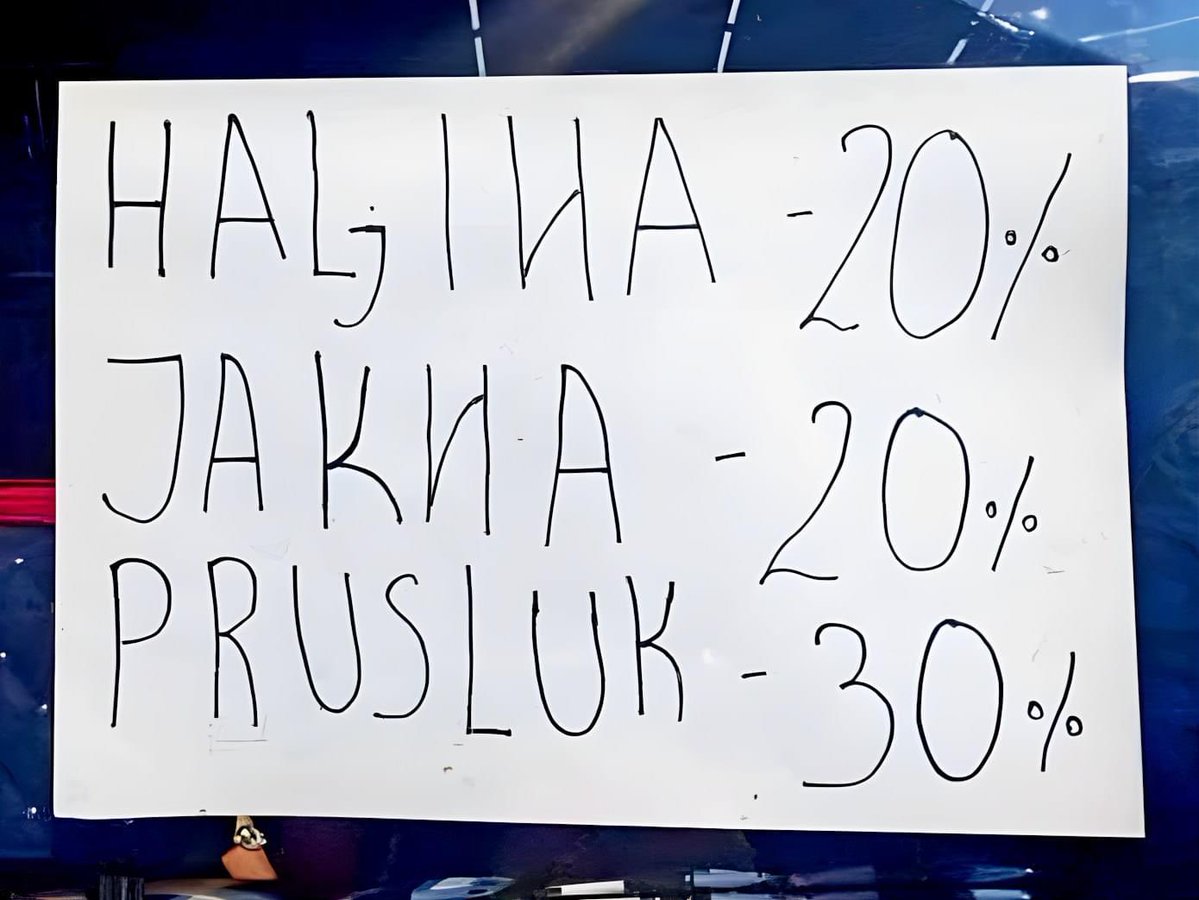 HALjINA -20%
JAKNA - 20%
PRUSLUK - 30%